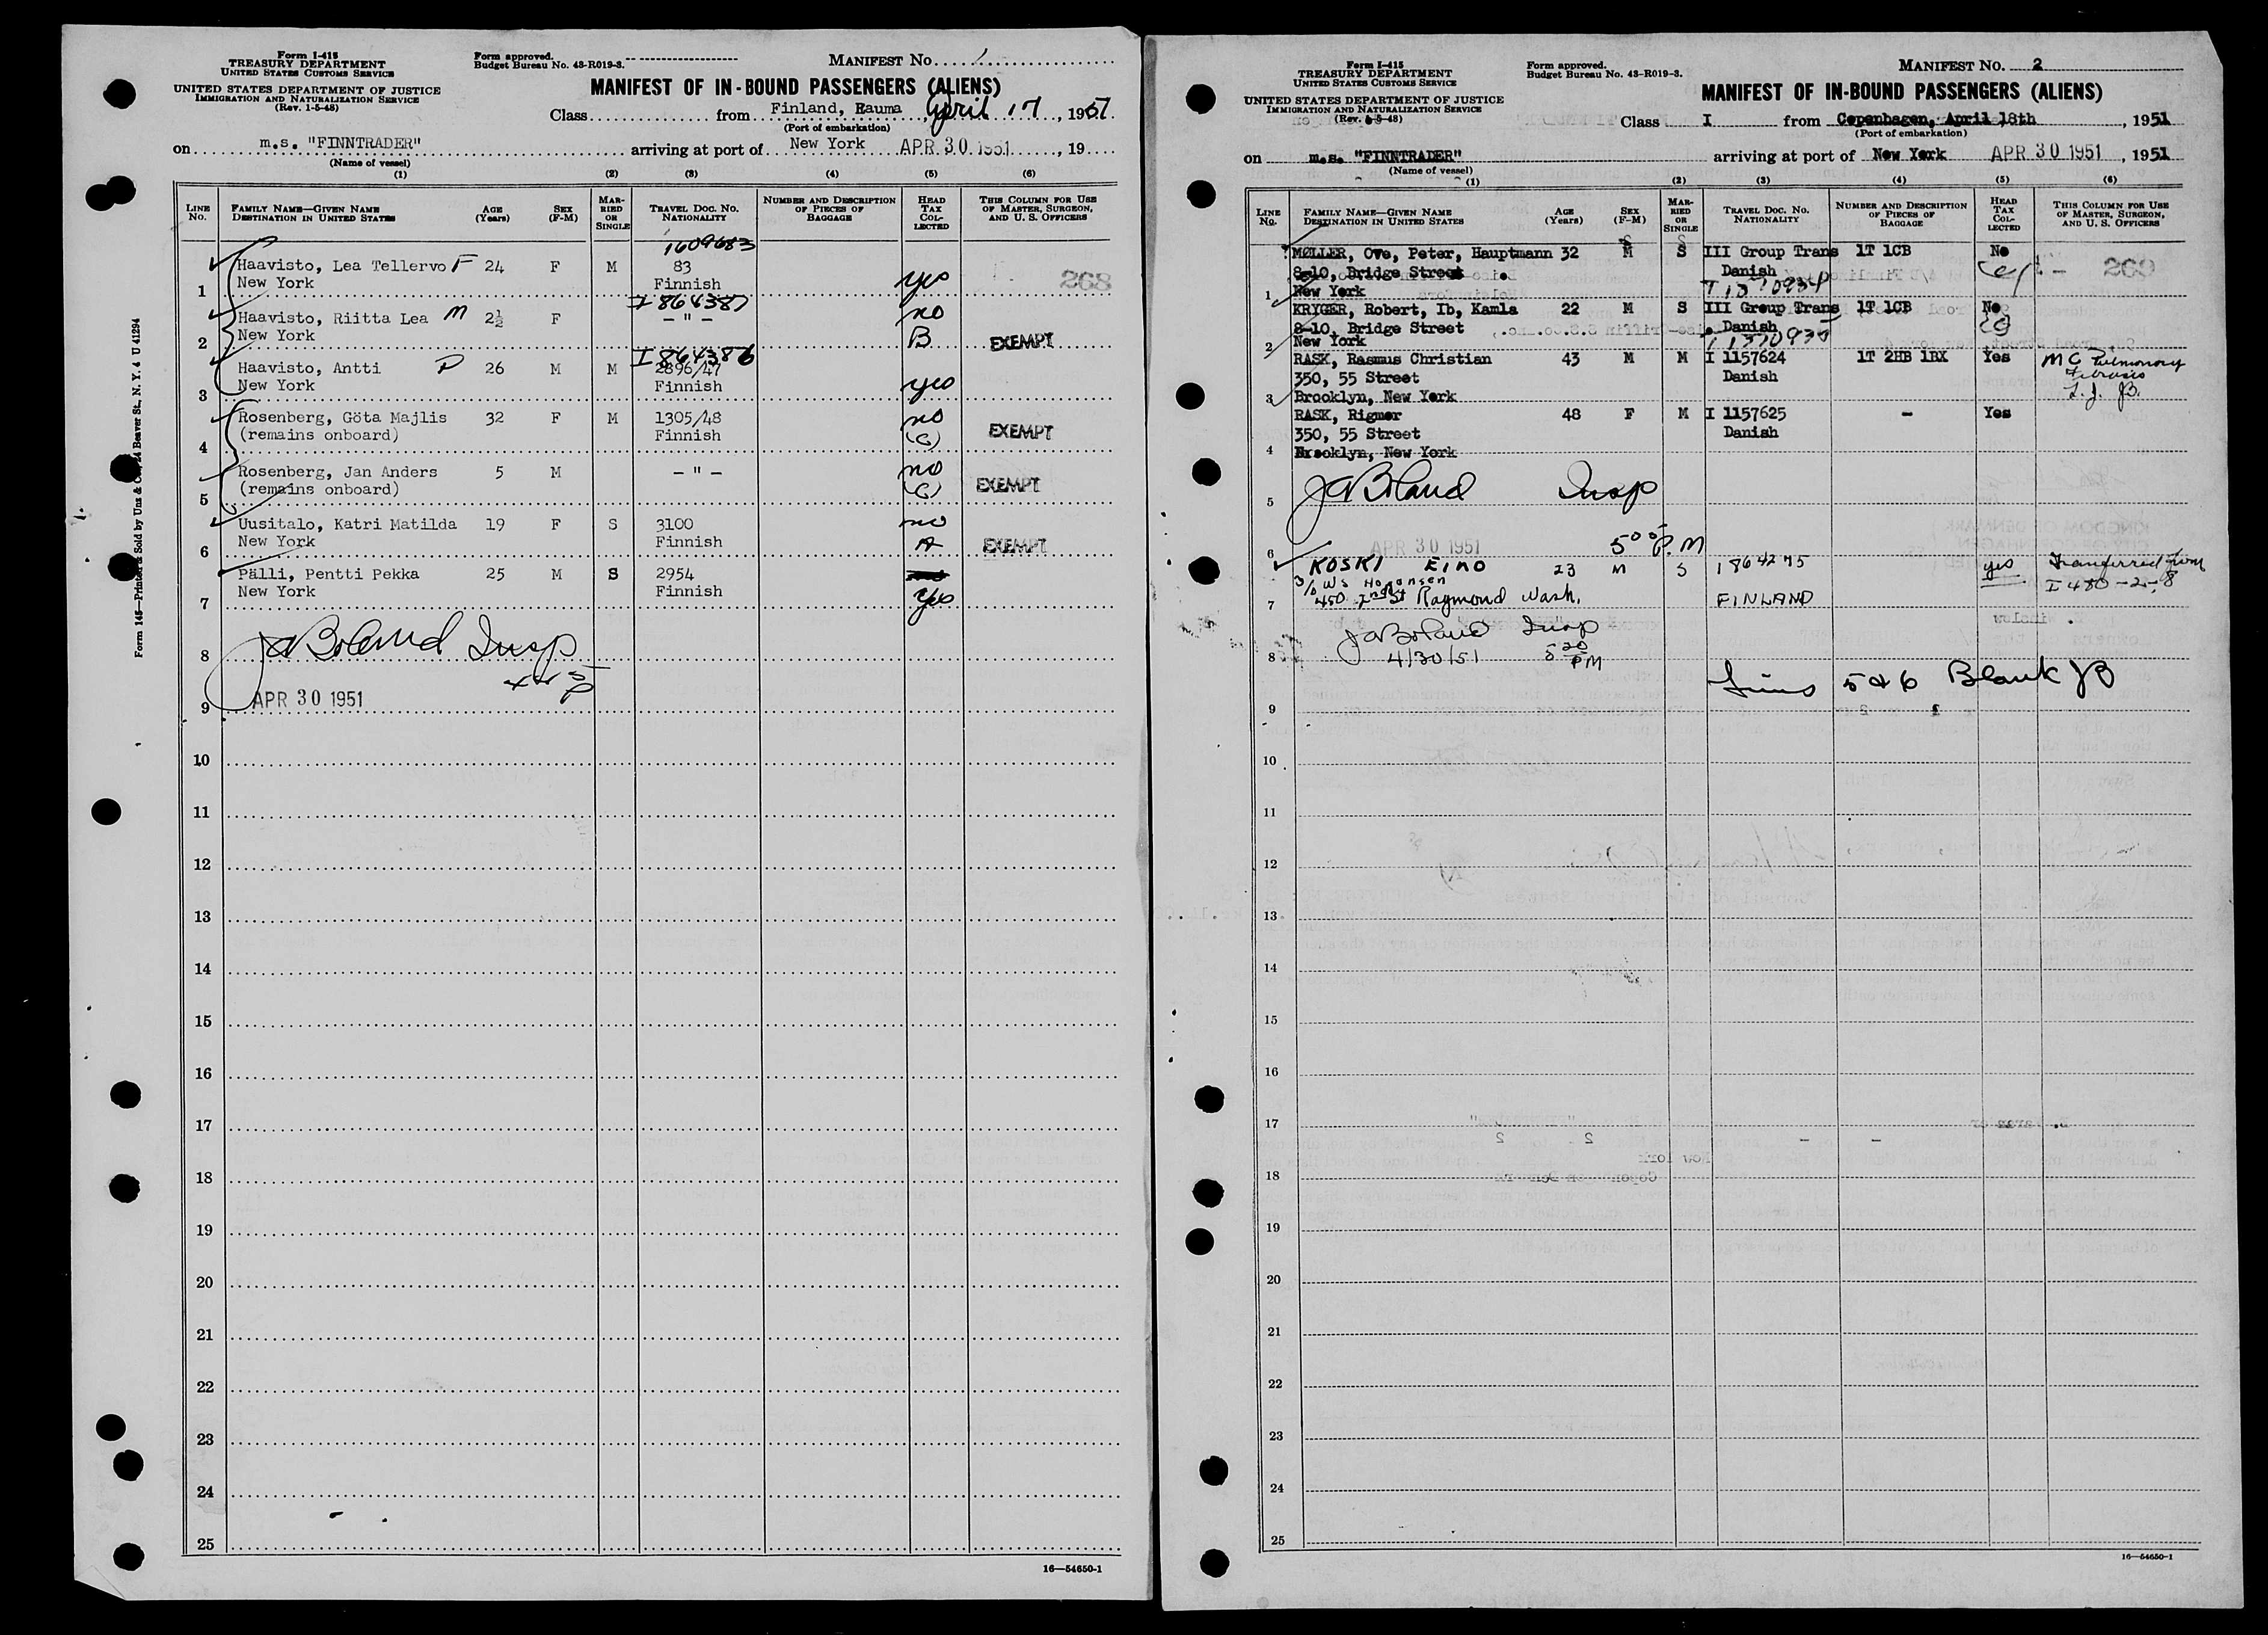 Form I-415
TREASURY DEPARTMENT
UNITED STATES CUSTOMS SERVICE
UNITED STATES DEPARTMENT OF JUSTICE
IMMIGRATION AND NATURALIZATION SERVICE
(Rev. 1-5-48)
Form approved.
Budget Bureau No. 43-R019-3.
MANIFEST No. 1
MANIFEST OF IN-BOUND PASSENGERS (ALIENS)
Class from Finland, Rauma, April 17, 1951
(Port of embarkation)
on m.s. "FINNTRADER" arriving at port of New York APR 30 1951, 19
(Name of vessel)
(1) (2) (3) (4) (5) (6)
LINE No. FAMILY NAME—GIVEN NAME DESTINATION IN UNITED STATES AGE (Years) SEX (F-M) MARRIED OR SINGLE TRAVEL DOC. No. NATIONALITY NUMBER AND DESCRIPTION OF PIECES OF BAGGAGE HEAD TAX COLLECTED THIS COLUMN FOR USE OF MASTER, SURGEON, AND U. S. OFFICERS
1609683
Haavisto, Lea Tellervo F 24 F M 83 268
1 New York Finnish yes
I 864387
Haavisto, Riitta Lea M 2½ F – " – no
2 New York B EXEMPT
I 864386
Haavisto, Antti P 26 M M 2896/47
3 New York Finnish yes
Rosenberg, Göta Majlis 32 F M 1305/48 no
4 (remains onboard) Finnish (G) EXEMPT
Rosenberg, Jan Anders 5 M – " – no
5 (remains onboard) (G) EXEMPT
Uusitalo, Katri Matilda 19 F S 3100 no
6 New York Finnish A EXEMPT
Pälli, Pentti Pekka 25 M S 2954
7 New York Finnish yes
8 JA Boland Insp
9 APR 30 1951
10
11
12
13
14
15
16
17
18
19
20
21
22
23
24
25
16—54650-1
Form 145—Printed & Sold by Unz & Co., 24 Beaver St., N. Y. 4 U 41294
Form I-415
TREASURY DEPARTMENT
UNITED STATES CUSTOMS SERVICE
UNITED STATES DEPARTMENT OF JUSTICE
IMMIGRATION AND NATURALIZATION SERVICE
(Rev. 1-5-48)
Form approved.
Budget Bureau No. 43-R019-3.
MANIFEST No. 2
MANIFEST OF IN-BOUND PASSENGERS (ALIENS)
Class I from Copenhagen, April 18th, 1951
(Port of embarkation)
on m.s. "FINNTRADER" arriving at port of New York APR 30 1951, 1951
(Name of vessel)
(1) (2) (3) (4) (5) (6)
LINE No. FAMILY NAME—GIVEN NAME DESTINATION IN UNITED STATES AGE (Years) SEX (F-M) MARRIED OR SINGLE TRAVEL DOC. No. NATIONALITY NUMBER AND DESCRIPTION OF PIECES OF BAGGAGE HEAD TAX COLLECTED THIS COLUMN FOR USE OF MASTER, SURGEON, AND U. S. OFFICERS
MØLLER, Ove, Peter, Hauptmann 32 M S III Group Trans 1T 1CB No
8-10, Bridge Street Danish 269
1 New York
KRYGER, Robert, Ib, Kamla 22 M S III Group Trans 1T 1CB No
8-10, Bridge Street Danish (G)
2 New York
RASK, Rasmus Christian 43 M M I 1157624 1T 2HB 1BX Yes MC Pulmonary
350, 55 Street Danish Fibrosis
3 Brooklyn, New York
RASK, Rigmor 48 F M I 1157625 – Yes
350, 55 Street Danish
4 Brooklyn, New York
5 JA Boland Insp
6 APR 30 1951 5 00 P.M
KOSKI EINO 23 M S 1864275 yes Transferred from
I 480-2-8
7 450 2nd St Raymond Wash. FINLAND
JA Boland Insp
8 4/30/51 5 20 PM
Lines 5 & 6 Blank JB
9
10
11
12
13
14
15
16
17
18
19
20
21
22
23
24
25
16—54650-1